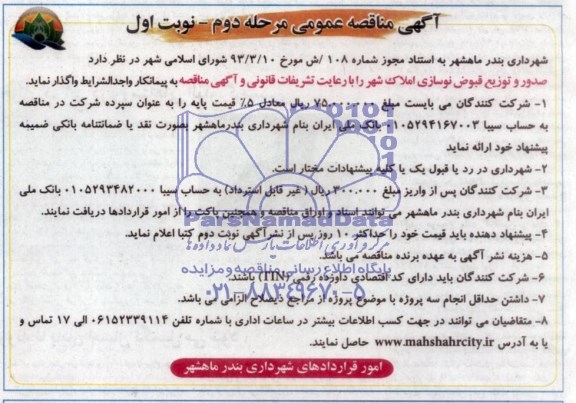 آگهی مناقصه عمومی مرحله دوم - نوبت اول
شهرداری بندر ماهشهر به استناد مجوز شماره ۱۰۸ /ش مورخ ۹۳/۳/۱۰ شورای اسلامی شهر در نظر دارد
صدور و توزیع قبوض نوسازی املاک شهر را با رعایت تشریفات قانونی و آگهی مناقصه به پیمانکار واجدالشرایط واگذار نماید.
۱- شرکت کنندگان می بایست مبلغ ۷۵۰۰۰۰۰۰ ریال معادل ۵٪ قیمت پایه را به عنوان سپرده شرکت در مناقصه
به حساب سیبا ۰۱۰۵۲۹۴۱۶۷۰۰۳ بانک ملی ایران بنام شهرداری بندرماهشهر بصورت نقد یا ضمانتنامه بانکی ضمیمه
پیشنهاد خود ارائه نماید
۲- شهرداری در رد یا قبول یک یا کلیه پیشنهادات مختار است.
۳- شرکت کنندگان پس از واریز مبلغ ۳۰۰.۰۰۰ ریال ( غیر قابل استرداد) به حساب سیبا ۰۱۰۵۲۹۳۴۸۲۰۰۰ بانک ملی
ایران بنام شهرداری بندر ماهشهر می توانند اسناد و اوراق مناقصه و همچنین پاکت را از امور قراردادها دریافت نمایند.
۴- پیشنهاد دهنده باید قیمت خود را حداکثر ۱۰ روز پس از نشر آگهی نوبت دوم کتبا اعلام نماید.
۵- هزینه نشر آگهی به عهده برنده مناقصه می باشد.
۶- شرکت کنندگان باید دارای کد اقتصادی دوازده رقمی (TIN) باشند.
۷- داشتن حداقل انجام سه پروژه با موضوع پروژه از مراجع ذیصلاح الزامی می باشد.
۸- متقاضیان می توانند در جهت کسب اطلاعات بیشتر در ساعات اداری با شماره تلفن ۰۶۱۵۲۳۳۹۱۱۴ الی ۱۷ تماس و
یا به آدرس www.mahshahrcity.ir حاصل نمایند.
امور قراردادهای شهرداری بندر ماهشهر
ParsNamadData
مرکز فرآوری اطلاعات پارس نماد داده ها
پایگاه اطلاع رسانی مناقصه و مزایده
۰۲۱-۸۸۳۴۹۶۷۰-۵